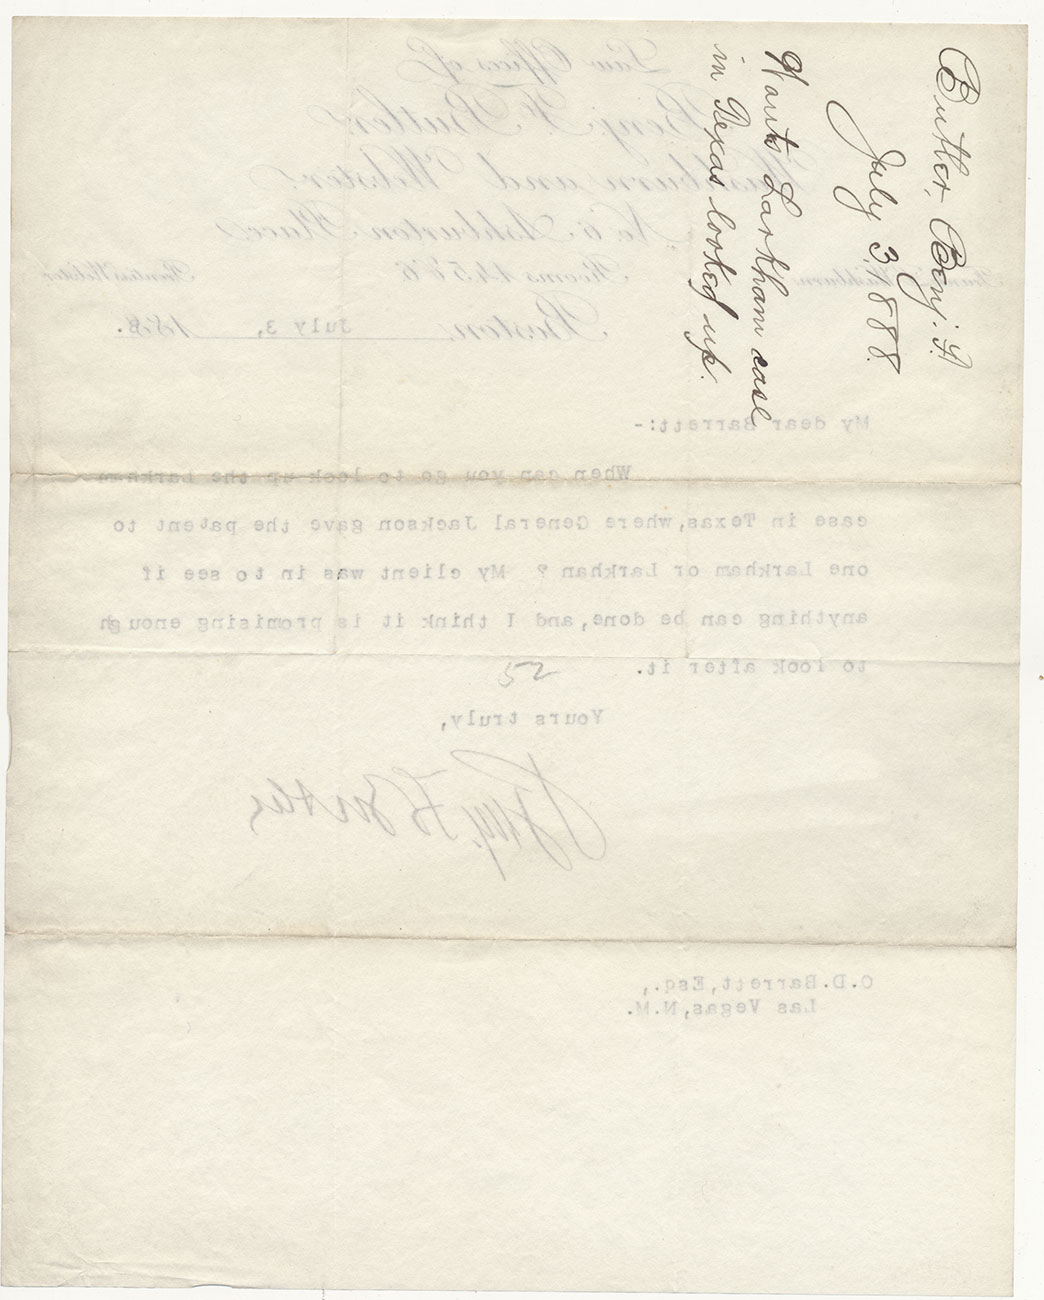 Butler, Benj. F.
July 3, 1888.
Wants Larkham case
in Texas looked up.
Law Offices of
Benj. F. Butler,
Washburn and Webster.
No. 6. Ashburton Place,
Rooms 4 4 5 & 6
Boston, July 3, 188 8.
My dear Barrett:-
When can you go to look up the Larkham
case in Texas, where General Jackson gave the patent to
one Larkham or Larkhan ? My client was in to see if
anything can be done, and I think it is promising enough
to look after it.
52
Yours truly,
Benj. F. Butler
C.D.Barrett,Esq.,
Las Vegas,N.M.